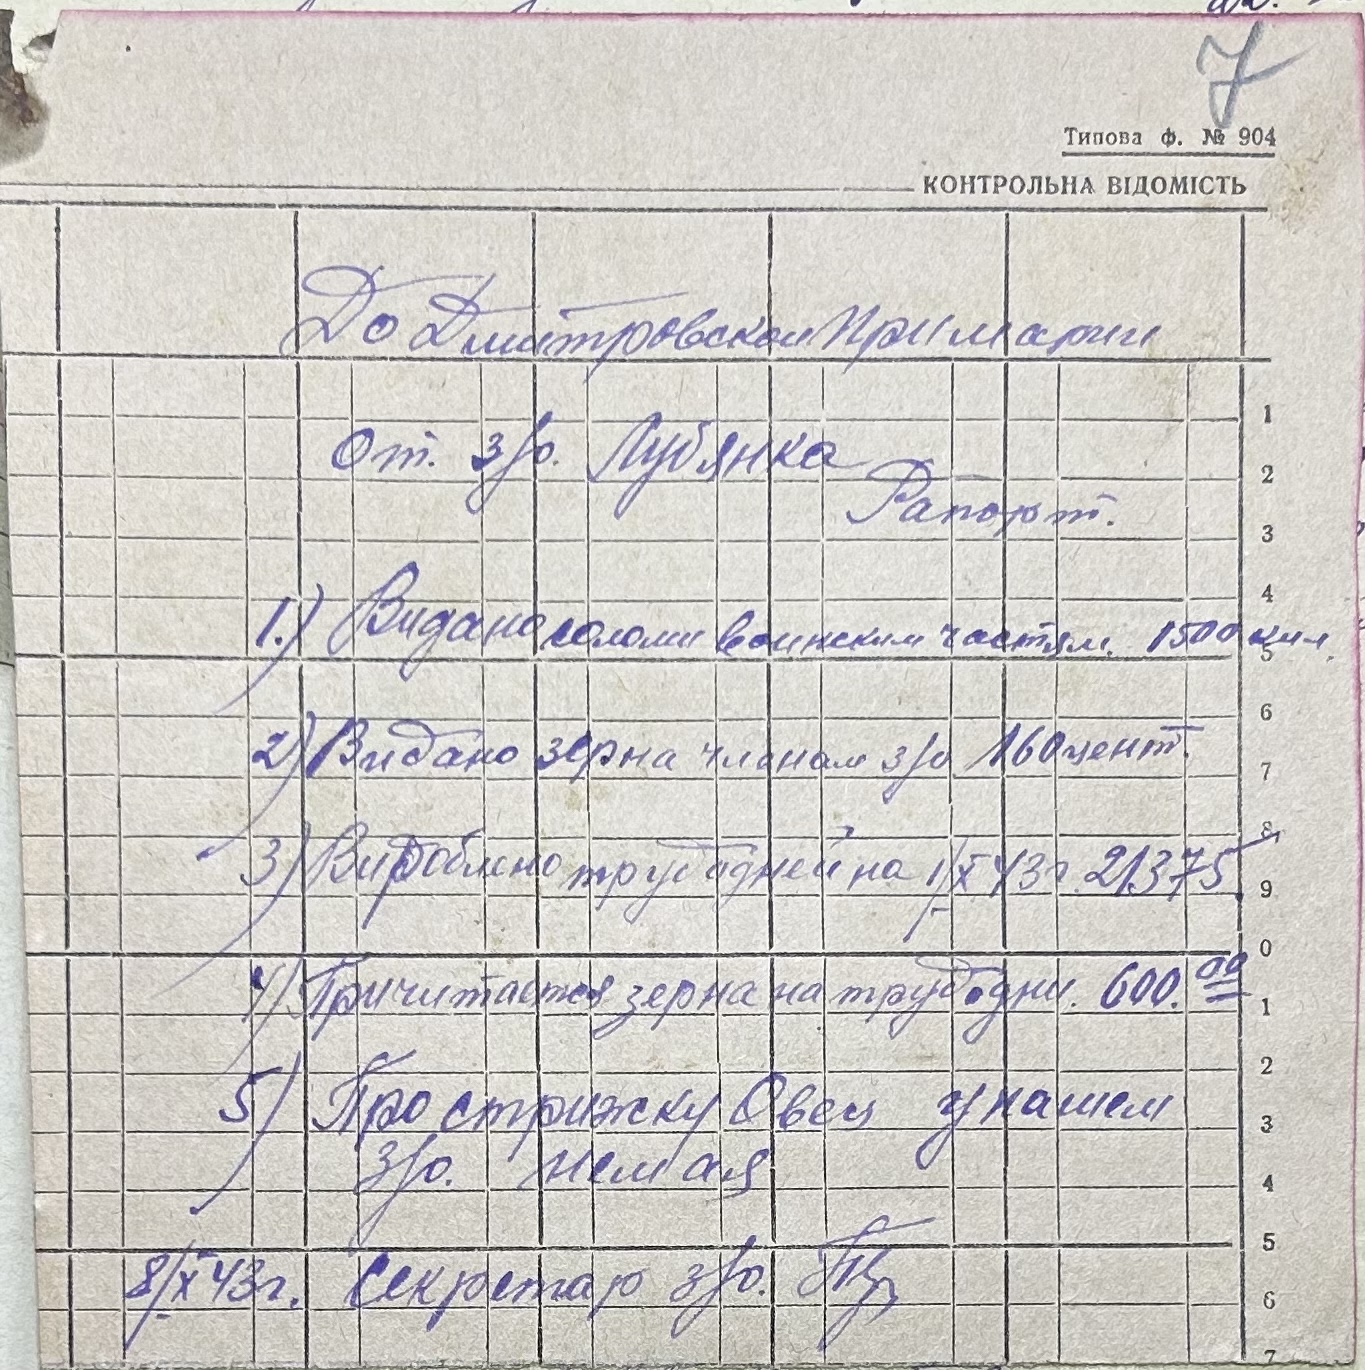 7
Типова ф. № 904
КОНТРОЛЬНА ВІДОМІСТЬ
До Дмитровской Примарии
От. з/о. Лубянка
Рапорт.
1.) Видано соломи воинским частям. 1500 кил.
2) Видано зерна членам з/о 160 цент.
3) Вироблено трудодней на 1/X 43г. 21375
4) Причитается зерна на трудодни. 600.00
5) Про стрижку Овец у нашем
з/о. немая
8/X 43г. Секретар з/о.
1
2
3
4
5
6
7
8
9
0
1
2
3
4
5
6
7